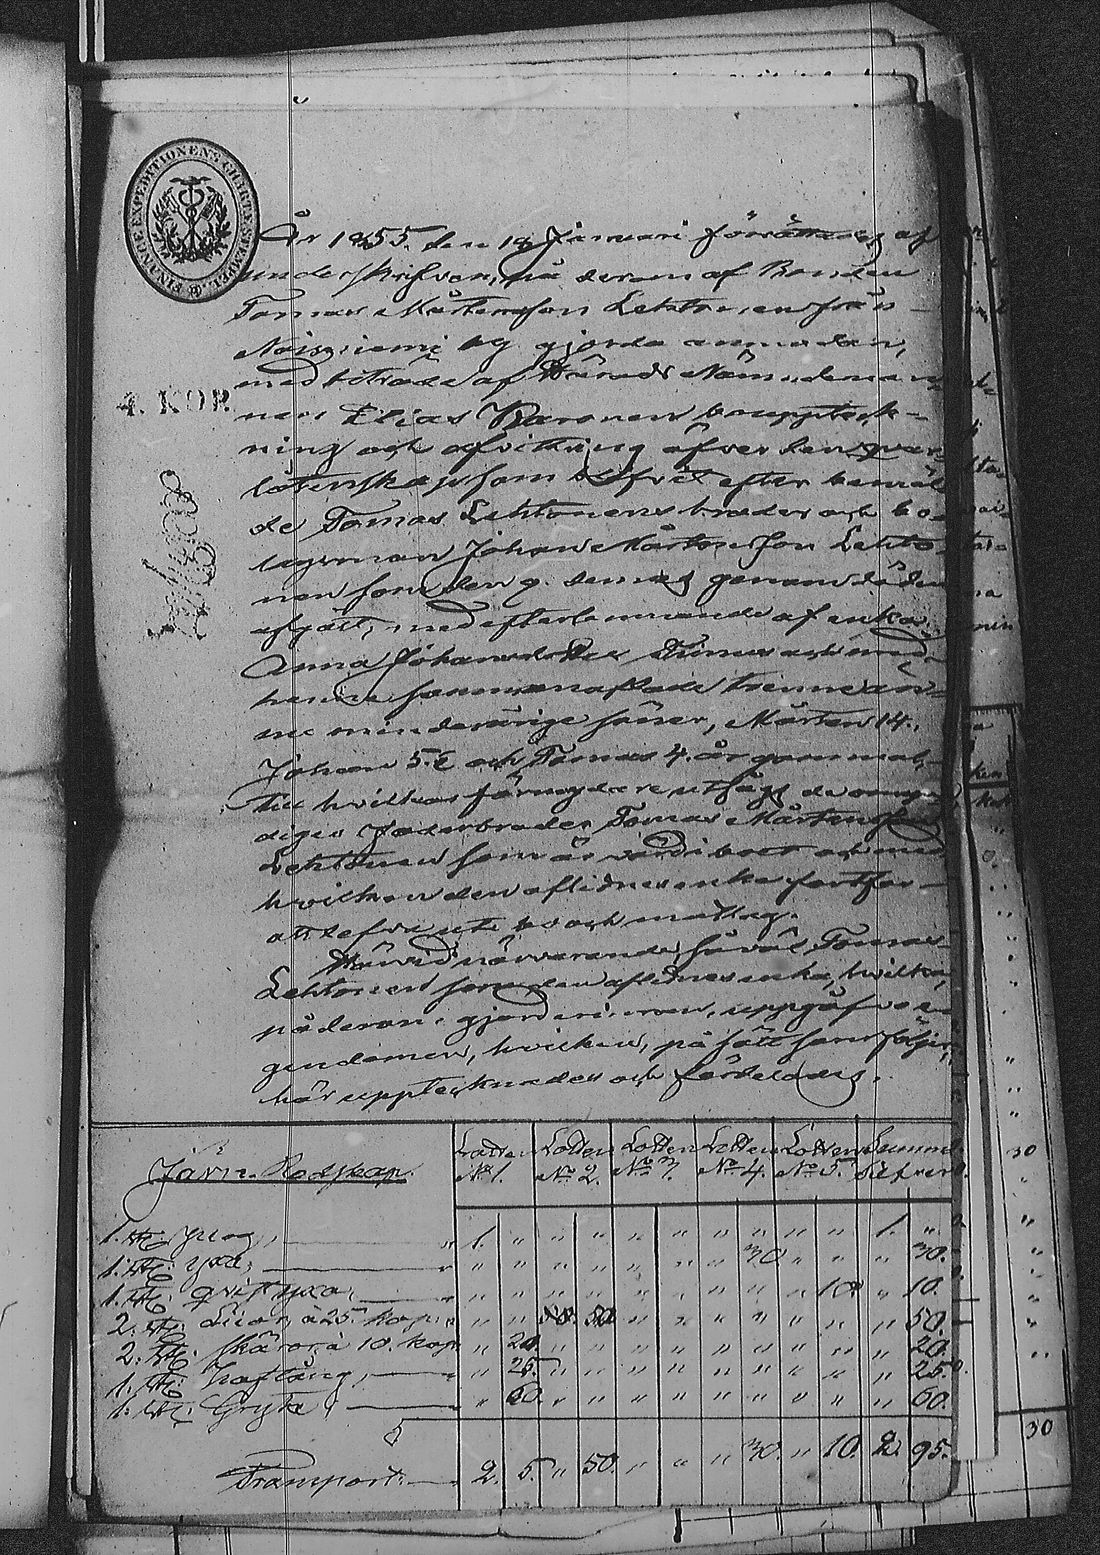 FINANCE EXPEDITIONENS CHARTÆ STÄMPEL
4. KOP.
År 1855. den 19 Januari förrättades af
underskrifven, på deran af Bonden
Tomas Mårtensson Lehtonen från
Noisniemi by gjorda anmodan,
med biträde af Härads Nämndeman
Elias Karonen bouppteck-
ning och afvittring öfver den qvar
låtenskap som blifvit efter bemäl
de Tomas Lehtonens broder och bo-
lagsman Johan Mårtensson Lehto
nen som den 9. dennes genom döden
afgått, med efterlemnande af enka
Anna Johansdotter och med
henne sammanaflade trenne än-
nu minderårige söner, Mårten 14.,
Johan 5. och Tomas 4. år gammal,
till hvilkas förmyndare utsågs de omyn
diges faderbroder Tomas Mårtensson
Lehtonen som är värd i boet och med
hvilken den aflidnes enka fortfar-
att lefva uti bo och matlag.
Härvid närvarande såväl Tomas
Lehtonen som den aflidnes enka, hvilka,
på deran gjord erinran, uppgåfvo e
gendomen, hvilken, på sätt som följer,
här upptecknades och fördelades.
Järn Redskap. Lotten No 1. Lotten No 2. Lotten No 3. Lotten No 4. Lotten No 5. Summa Silfver.
1. St. " 1. " " " " " " " " " 1. "
1. St. yxa, " " " " " " " " 30 " " " 30.
1. St. qvistyxa, " " " " " " " " " " 10 " 10.
2. St. Liar, à 25. kop. " " " 50. " " " " " " " 50.
2. St. skäror à 10. kop " 20. " " " " " " " " " 20.
1. St. Haftång, " 25. " " " " " " " " " 25.
1. St. Gryta, " 60. " " " " " " " " " 60.
Transport. 2. 5. " 50. " " " 30. " 10. 2. 95.
30
30